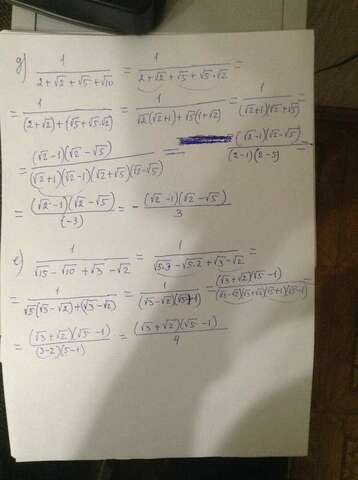 д) 1/(2+√2+√5+√10) = 1/(2+√2+√5+√5·√2) =
= 1/((2+√2)+(√5+√5·√2)) = 1/(√2(√2+1)+√5(1+√2)) = 1/((√2+1)(√2+√5))
= (√2-1)(√2-√5)/((√2+1)(√2-1)(√2+√5)(√2-√5)) = (√2-1)(√2-√5)/((2-1)(2-5)) =
= (√2-1)(√2-√5)/(-3) = -(√2-1)(√2-√5)/3
е) 1/(√15-√10+√3-√2) = 1/(√5·3-√5·2+√3-√2) =
= 1/(√5(√3-√2)+(√3-√2)) = 1/((√3-√2)(√5+1)) = (√3+√2)(√5-1)/((√3-√2)(√3+√2)(√5+1)(√5-1)) =
= (√3+√2)(√5-1)/((3-2)(5-1)) = (√3+√2)(√5-1)/4